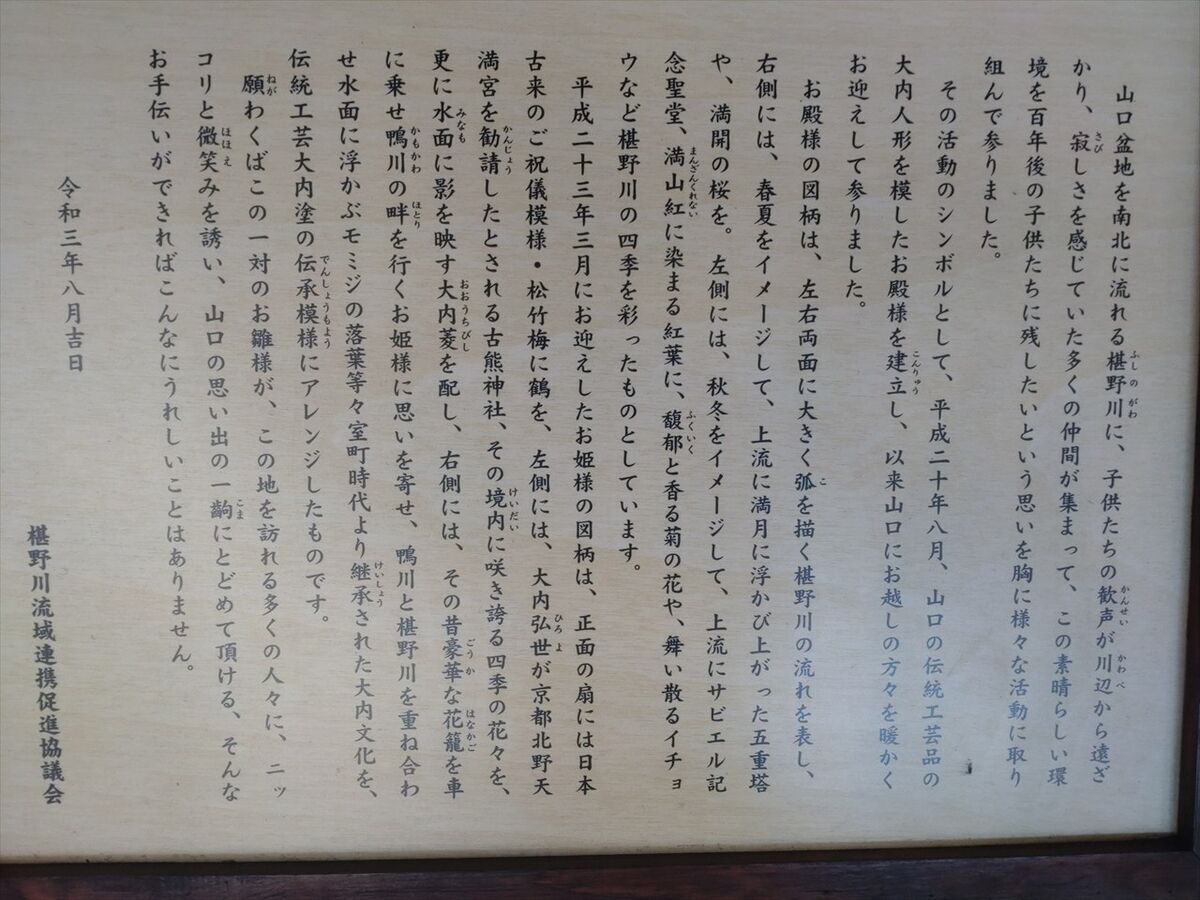 山口盆地を南北に流れる椹野川に、子供たちの歓声が川辺から遠ざ
かり、寂しさを感じていた多くの仲間が集まって、この素晴らしい環
境を百年後の子供たちに残したいという思いを胸に様々な活動に取り
組んで参りました。
その活動のシンボルとして、平成二十年八月、山口の伝統工芸品の
大内人形を模したお殿様を建立し、以来山口にお越しの方々を暖かく
お迎えして参りました。
お殿様の図柄は、左右両面に大きく弧を描く椹野川の流れを表し、
右側には、春夏をイメージして、上流に満月に浮かび上がった五重塔
や、満開の桜を。左側には、秋冬をイメージして、上流にサビエル記
念聖堂、満山紅に染まる紅葉に、馥郁と香る菊の花や、舞い散るイチョ
ウなど椹野川の四季を彩ったものとしています。
平成二十三年三月にお迎えしたお姫様の図柄は、正面の扇には日本
古来のご祝儀模様・松竹梅に鶴を、左側には、大内弘世が京都北野天
満宮を勧請したとされる古熊神社、その境内に咲き誇る四季の花々を、
更に水面に影を映す大内菱を配し、右側には、その昔豪華な花籠を車
に乗せ鴨川の畔を行くお姫様に思いを寄せ、鴨川と椹野川を重ね合わ
せ水面に浮かぶモミジの落葉等々室町時代より継承された大内文化を、
伝統工芸大内塗の伝承模様にアレンジしたものです。
願わくばこの一対のお雛様が、この地を訪れる多くの人々に、ニッ
コリと微笑みを誘い、山口の思い出の一齣にとどめて頂ける、そんな
お手伝いができればこんなにうれしいことはありません。
令和三年八月吉日
椹野川流域連携促進協議会